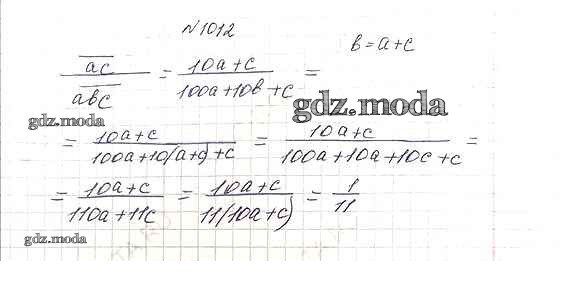 №1012
b = a + c
ac / abc = (10a + c) / (100a + 10b + c) =
gdz.moda
gdz.moda
= (10a + c) / (100a + 10(a + c) + c) = (10a + c) / (100a + 10a + 10c + c) =
= (10a + c) / (110a + 11c) = (10a + c) / (11(10a + c)) = 1 / 11
gdz.moda